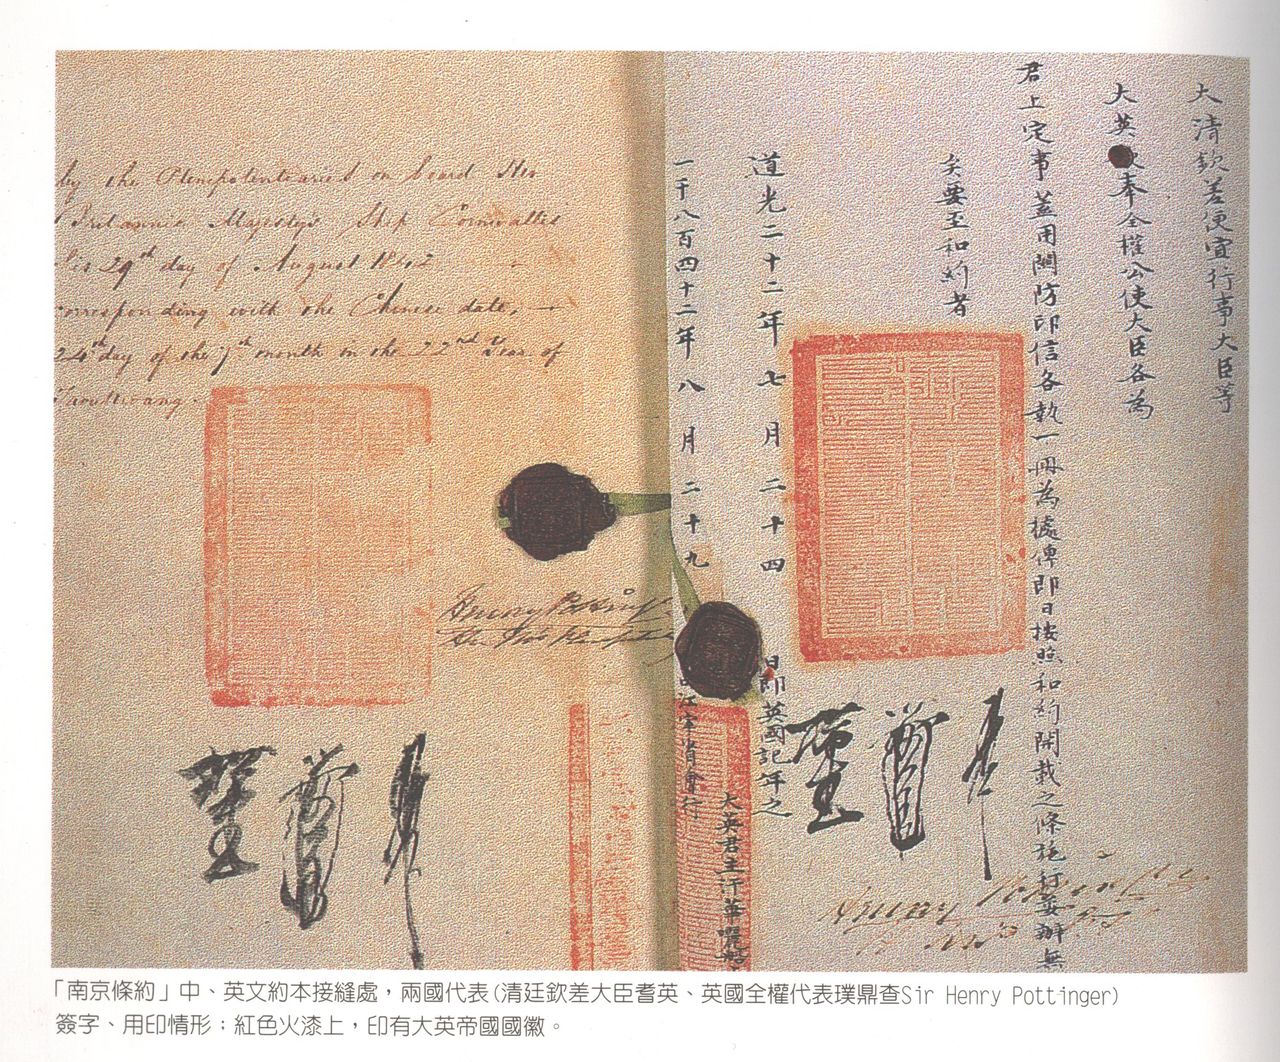 by the Plenipotentiaries on board Her
Britannic Majesty's Ship Cornwallis
this 29th day of August 1842
corresponding with the Chinese date,
24th day of the 7th month in the 22nd Year of
Taoukwang.
大清欽差便宜行事大臣等
大英欽奉全權公使大臣各為
君上定事蓋用關防印信各執一冊為據俾即日按照和約開載之條施行妥辦無
矣要至和約者
道光二十二年七月二十四日即英國記年之
一千八百四十二年八月二十九
江寧省會行
大英君主汗華囇船
「南京條約」中、英文約本接縫處，兩國代表(清廷欽差大臣耆英、英國全權代表璞鼎查Sir Henry Pottinger)
簽字、用印情形；紅色火漆上，印有大英帝國國徽。